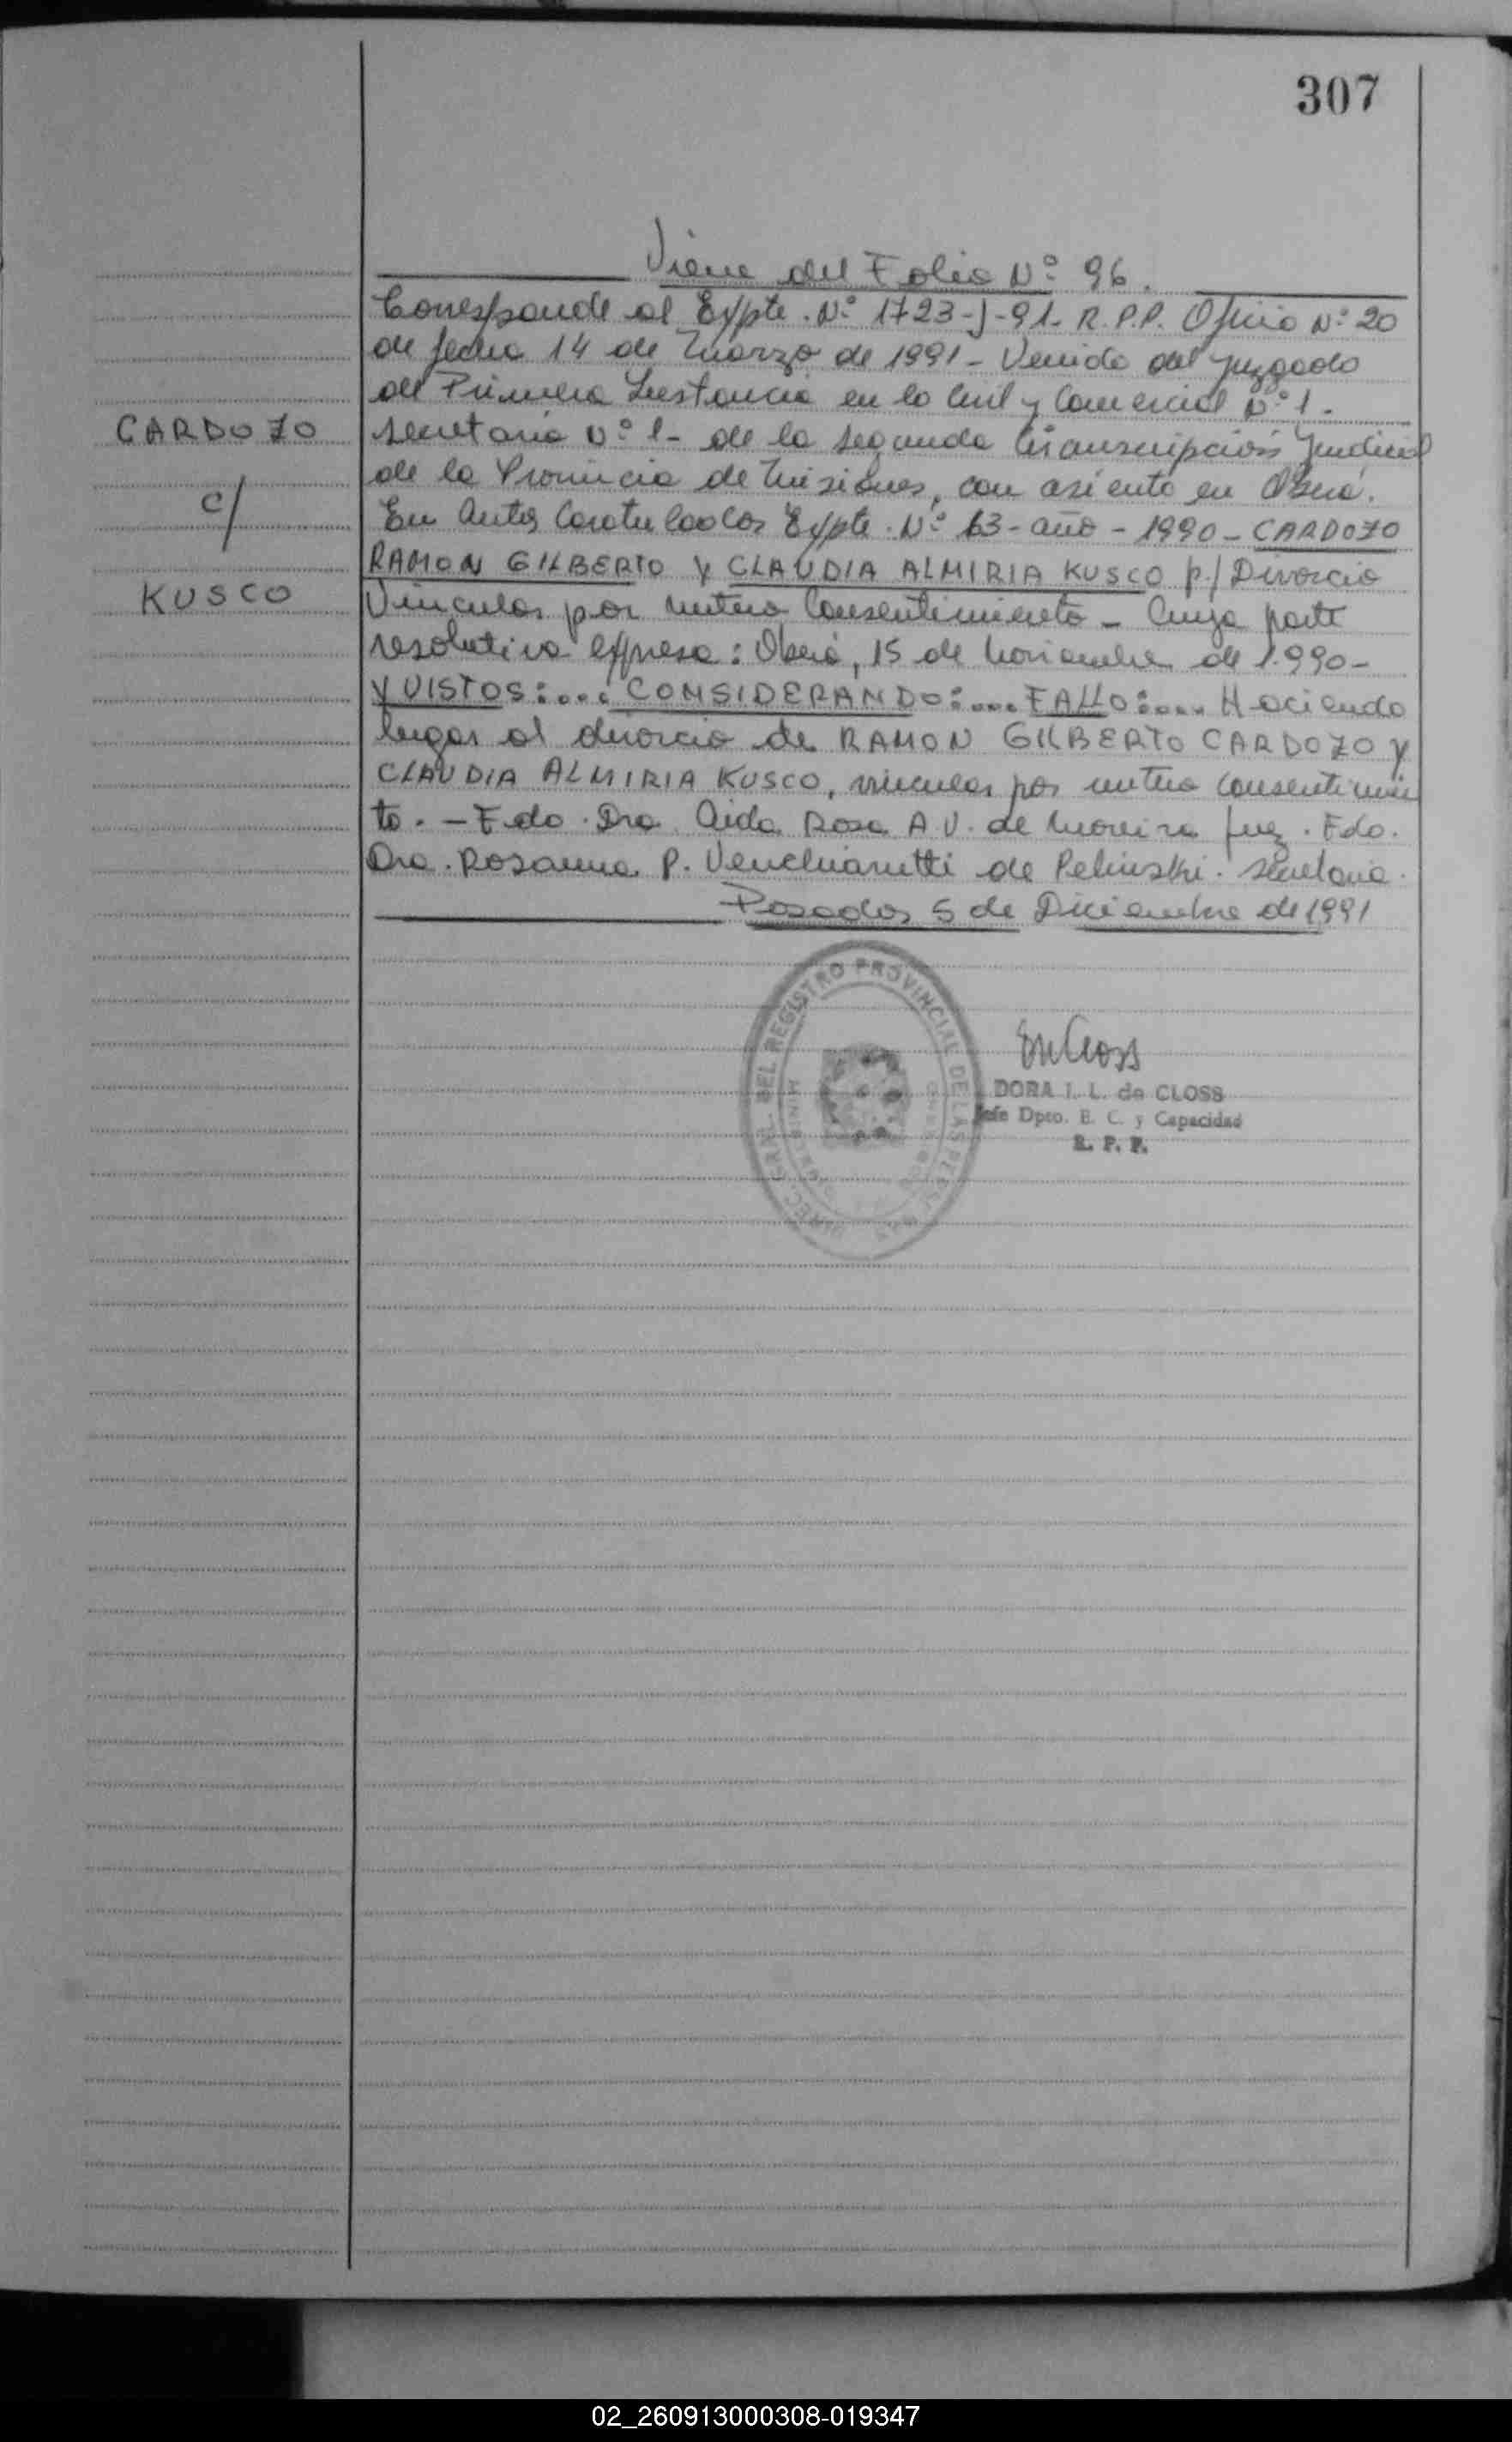 307
Viene del Folio Nº 96.
Corresponde al Expte. Nº 1723-J-91- R.P.P. Oficio Nº 20
de fecha 14 de Marzo de 1991 - Venido del Juzgado
de Primera Instancia en lo Civil y Comercial Nº 1 -
CARDOZO
Secretaria Nº 1 - de la Segunda Circunscripción Judicial
de la Provincia de Misiones, con asiento en Oberá.
c/
En Autos Caratulados Expte. Nº 63 - año - 1990 - CARDOZO
RAMON GILBERTO Y CLAUDIA ALMIRIA KUSCO p./ Divorcio
KUSCO
Vincular por mutuo Consentimiento - Cuya parte
resolutiva expresa: Oberá, 15 de Noviembre de 1.990 -
Y VISTOS:.... CONSIDERANDO:.... FALLO:.... Haciendo
lugar al divorcio de RAMON GILBERTO CARDOZO Y
CLAUDIA ALMIRIA KUSCO, vincular por mutuo consentimien
to. - Fdo. Dra. Aida Rosa A.V. de Moreira Juez. Fdo.
Dra. Rosanna P. Venchiarutti de Pelinski. Secretaria.
Posadas 5 de Diciembre de 1991
DIREC. GRAL. DEL REGISTRO PROVINCIAL DE LAS PERSONAS
DORA I. L. de CLOSS
Jefe Dpto. E. C. y Capacidad
R. P. P.
02_260913000308-019347